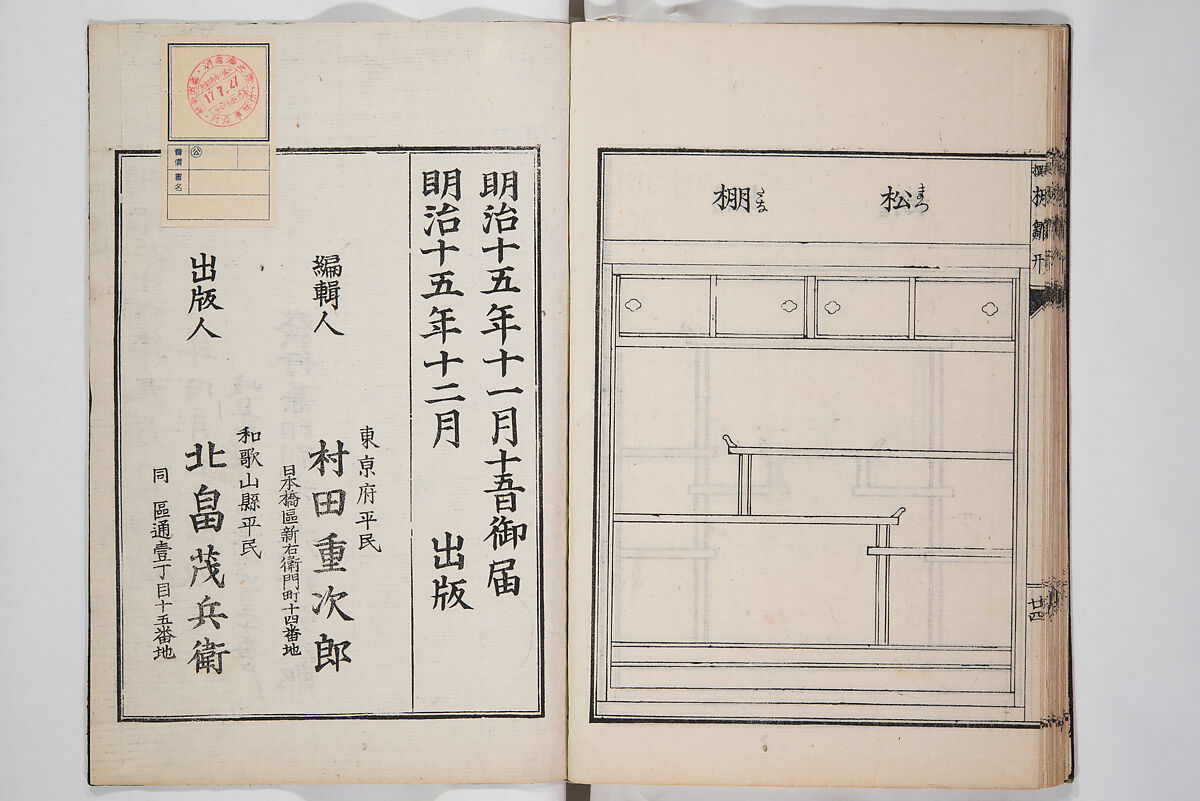 松
まつ
棚
たな
棚雛形
廿四
明治十五年十一月十五日御届
明治十五年十二月 出版
編輯人
東京府平民
村田重次郎
日本橋區新右衛門町十四番地
出版人
和歌山縣平民
北畠茂兵衛
同 區通壹丁目十五番地
17.7.27
公
書名